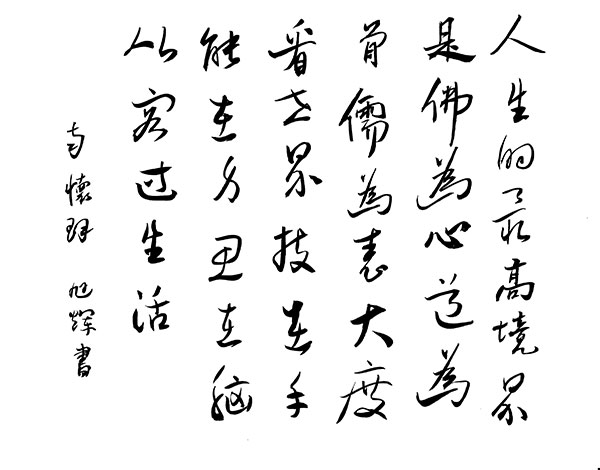 人生的最高境界
是佛為心道為
骨儒為表大度
看世界技在手
能在身思在腦
从容过生活
南懷瑾 旭輝書